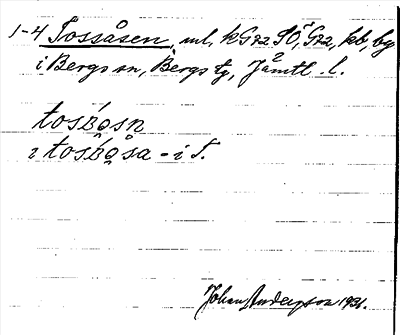 1-4 Tossåsen, ml, kG72SÖ, G72, kb, by
i Bergs sn, Bergs tg, Jämtl. l.
tosbosn
i tosbosa - i T.
Johan Anderson 1931.